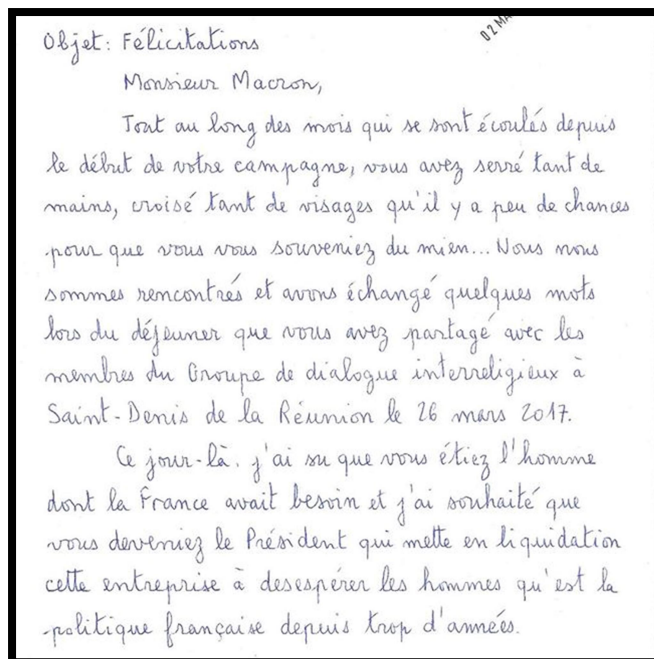 02 MA
Objet: Félicitations
Monsieur Macron,
Tout au long des mois qui se sont écoulés depuis
le début de votre campagne, vous avez serré tant de
mains, croisé tant de visages qu'il y a peu de chances
pour que vous vous souveniez du mien... Nous nous
sommes rencontrés et avons échangé quelques mots
lors du déjeuner que vous avez partagé avec les
membres du Groupe de dialogue interreligieux à
Saint-Denis de la Réunion le 26 mars 2017.
Ce jour-là, j'ai su que vous étiez l'homme
dont la France avait besoin et j'ai souhaité que
vous deveniez le Président qui mette en liquidation
cette entreprise à desespérer les hommes qu'est la
politique française depuis trop d'années.